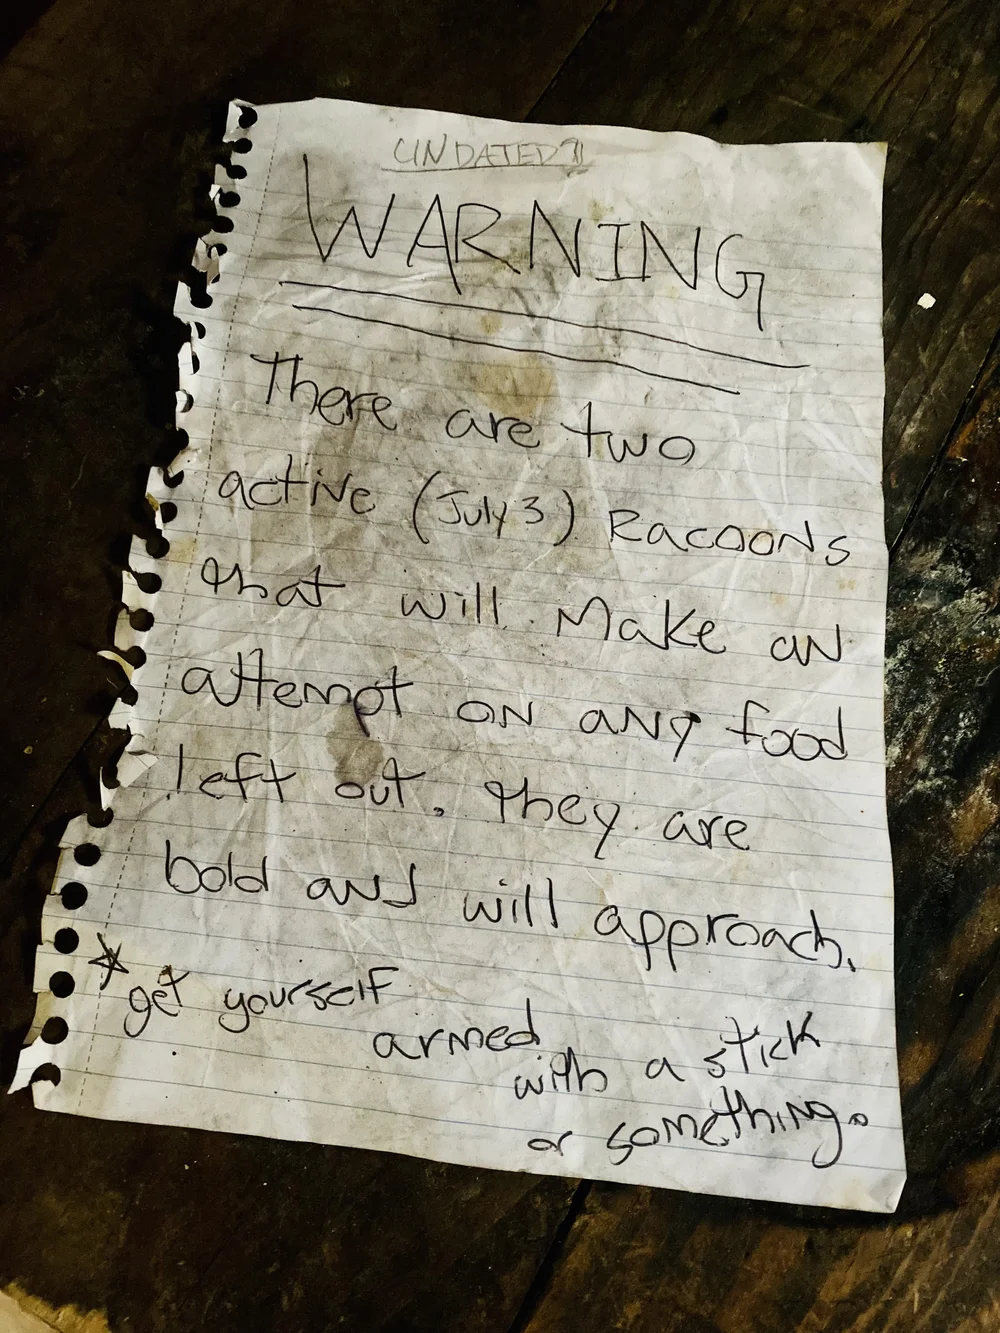 UNDATED?!
WARNING
There are two
active (July 3) Racoons
that will Make an
attempt on any food
left out. they are
bold and will approach.
☆ get yourself
armed
with a stick
or something.